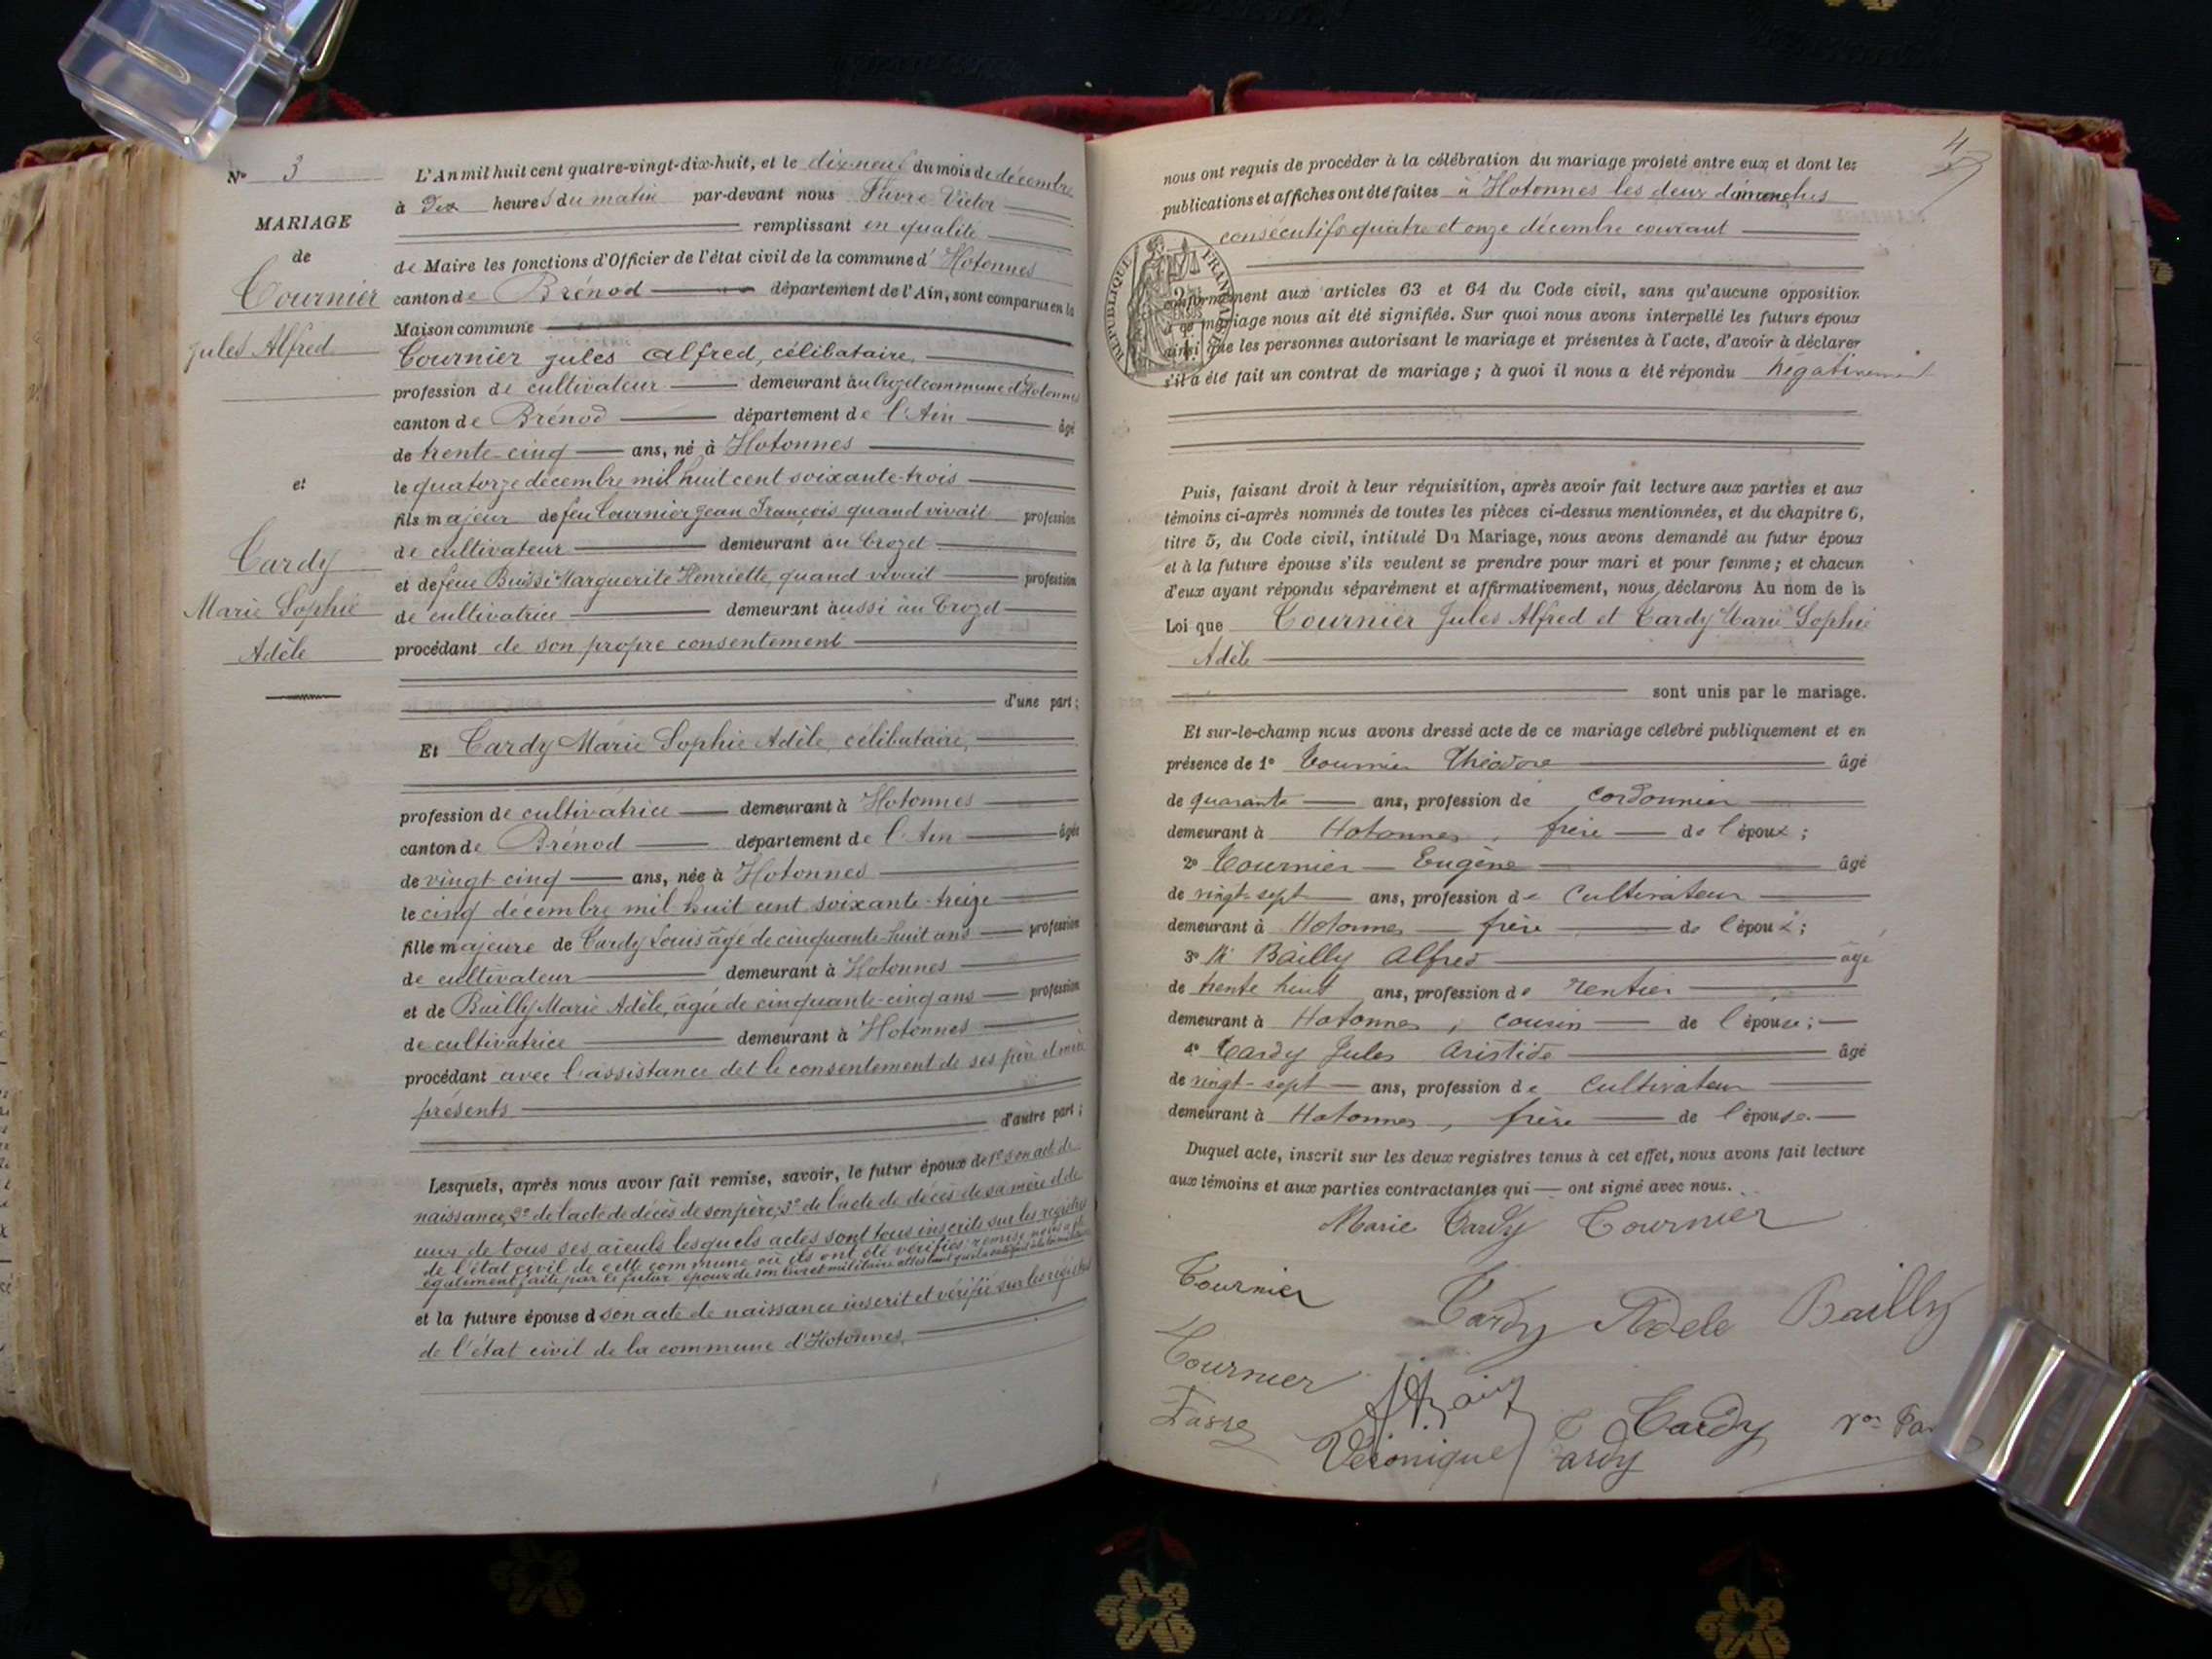 N° 3
MARIAGE
de
Tournier
Jules Alfred
et
Tardy
Marie Sophie
Adèle
L'An mil huit cent quatre-vingt-dix-huit, et le dix-neuf du mois de décembre
à Dix heures du matin par-devant nous Favre Victor
remplissant en qualité
de Maire les fonctions d'Officier de l'état civil de la commune d'Hotonnes
canton de Brénod département de l'Ain, sont comparus en la
Maison commune
Tournier Jules Alfred, célibataire,
profession de cultivateur demeurant au Crozet commune d'Hotonnes
canton de Brénod département de l'Ain âgé
de trente-cinq ans, né à Hotonnes
le quatorze décembre mil huit cent soixante-trois
fils majeur de feu Tournier Jean François quand vivait profession
de cultivateur demeurant au Crozet
et de feue Marguerite Henriette, quand vivait profession
de cultivatrice demeurant aussi au Crozet
procédant de son propre consentement
d'une part ;
Et Tardy Marie Sophie Adèle, célibataire,
profession de cultivatrice demeurant à Hotonnes
canton de Brénod département de l'Ain âgée
de vingt-cinq ans, née à Hotonnes
le cinq décembre mil huit cent soixante-treize
fille majeure de Tardy Louis âgé de cinquante-huit ans profession
de cultivateur demeurant à Hotonnes
et de Bailly Marie Adèle, âgée de cinquante-cinq ans profession
de cultivatrice demeurant à Hotonnes
procédant avec l'assistance et le consentement de ses père et mère
présents
d'autre part ;
Lesquels, après nous avoir fait remise, savoir, le futur époux de 1° son acte de
naissance, 2° de l'acte de décès de son père, 3° de l'acte de décès de sa mère et de
ceux de tous ses aïeuls lesquels actes sont tous inscrits sur les registres
de l'état civil de cette commune où ils ont été vérifiés, remise nous a été
également faite par le futur époux de son livret militaire
et la future épouse d son acte de naissance inscrit et vérifié sur les registres
de l'état civil de la commune d'Hotonnes.
4
nous ont requis de procéder à la célébration du mariage projeté entre eux et dont les
publications et affiches ont été faites à Hotonnes les deux dimanches
consécutifs quatre et onze décembre courant
RÉPUBLIQUE FRANÇAISE
conformément aux articles 63 et 64 du Code civil, sans qu'aucune opposition
à ce mariage nous ait été signifiée. Sur quoi nous avons interpellé les futurs époux
ainsi que les personnes autorisant le mariage et présentes à l'acte, d'avoir à déclarer
s'il a été fait un contrat de mariage ; à quoi il nous a été répondu négativement
Puis, faisant droit à leur réquisition, après avoir fait lecture aux parties et aux
témoins ci-après nommés de toutes les pièces ci-dessus mentionnées, et du chapitre 6,
titre 5, du Code civil, intitulé Du Mariage, nous avons demandé au futur époux
et à la future épouse s'ils veulent se prendre pour mari et pour femme ; et chacun
d'eux ayant répondu séparément et affirmativement, nous déclarons Au nom de la
Loi que Tournier Jules Alfred et Tardy Marie Sophie
Adèle
sont unis par le mariage.
Et sur-le-champ nous avons dressé acte de ce mariage célébré publiquement et en
présence de 1° Tournier Théodore âgé
de quarante ans, profession de cordonnier
demeurant à Hotonnes, frère de l'époux ;
2° Tournier Eugène âgé
de vingt-sept ans, profession de cultivateur
demeurant à Hotonnes frère de l'époux ;
3° Bailly Alfred âgé
de trente huit ans, profession de rentier
demeurant à Hotonnes, cousin de l'épouse ;
4° Tardy Jules Aristide âgé
de vingt-sept ans, profession de cultivateur
demeurant à Hotonnes, frère de l'épouse.
Duquel acte, inscrit sur les deux registres tenus à cet effet, nous avons fait lecture
aux témoins et aux parties contractantes qui ont signé avec nous.
Marie Tardy Tournier
Tournier
Tardy Adele Bailly
Tournier
Tardy
Véronique Tardy